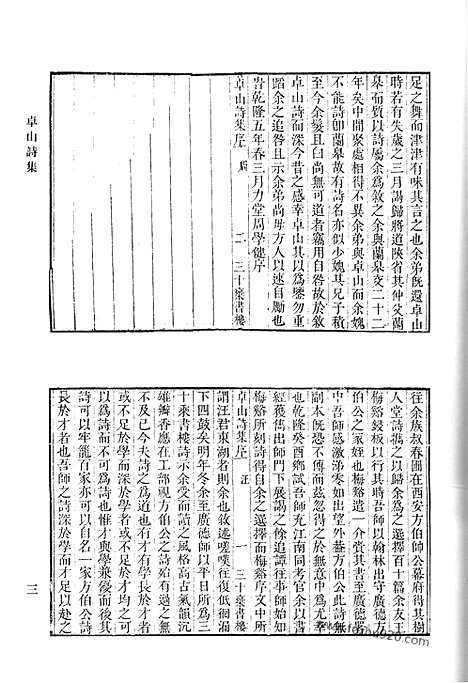 卓山詩集
足之舞而津津有味其言之也余弟旣還卓山
時若有失歲之三月謁歸將道陝省其仲父蘭
皋而質以詩屬余爲敘之余與蘭皋交二十二
年矣中間聚處相得不異余弟與卓山而余媿
不能詩卽蘭皋故有詩名亦似少媿其兄子積
至今余髮且白尚無可道者竊用自咎故於敘
卓山詩而深今昔之感幸卓山其以爲鑒勿重
蹈余之追咎且示余弟尚毋方人以速自勵也
旹乾隆五年春三月力堂周學健序
卓山詩集序
二
三十樂書樓
往余族叔春圃在西安方伯帥公幕府得其樹
人堂詩鐫之以歸余爲之選擇百十篇余友王
梅谿鋟板以行其時吾師以翰林出守廣德方
伯公之家嗣也梅谿造一介賫其
中吾師感激涕零如出望外蓋方伯公此詩無
副本旣恐不傳而茲忽得之於意中爲尤幸
乾隆癸酉鄭試吾師充江南同考官余以書
經獲雋出師門下展謁之餘追譚往事師始知
梅谿所刻詩得自余之選擇而梅谿序文中所
卓山詩集序
一
三十樂書樓
謂汪君東湖者則余也敘述嗟嘆往復低徊漏
下四鼓矣明年冬余至廣德師以平日所爲三
十乘書樓詩示余受而讀之風格高古氣韻沉
雄瓣香應在工部視方伯公之詩始有過之無
不及已今夫詩之爲道也有才有學長於才者
或不足於學而深於學或不足於才均之不可
以爲詩而不可與爲詩也惟才與學兼至而
詩可以牢籠百家亦可以自名一家方伯公詩
長於才者也吾師之詩深於學而才足以赴之
三